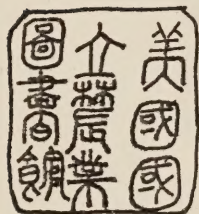 美國國
立農業
圖書館